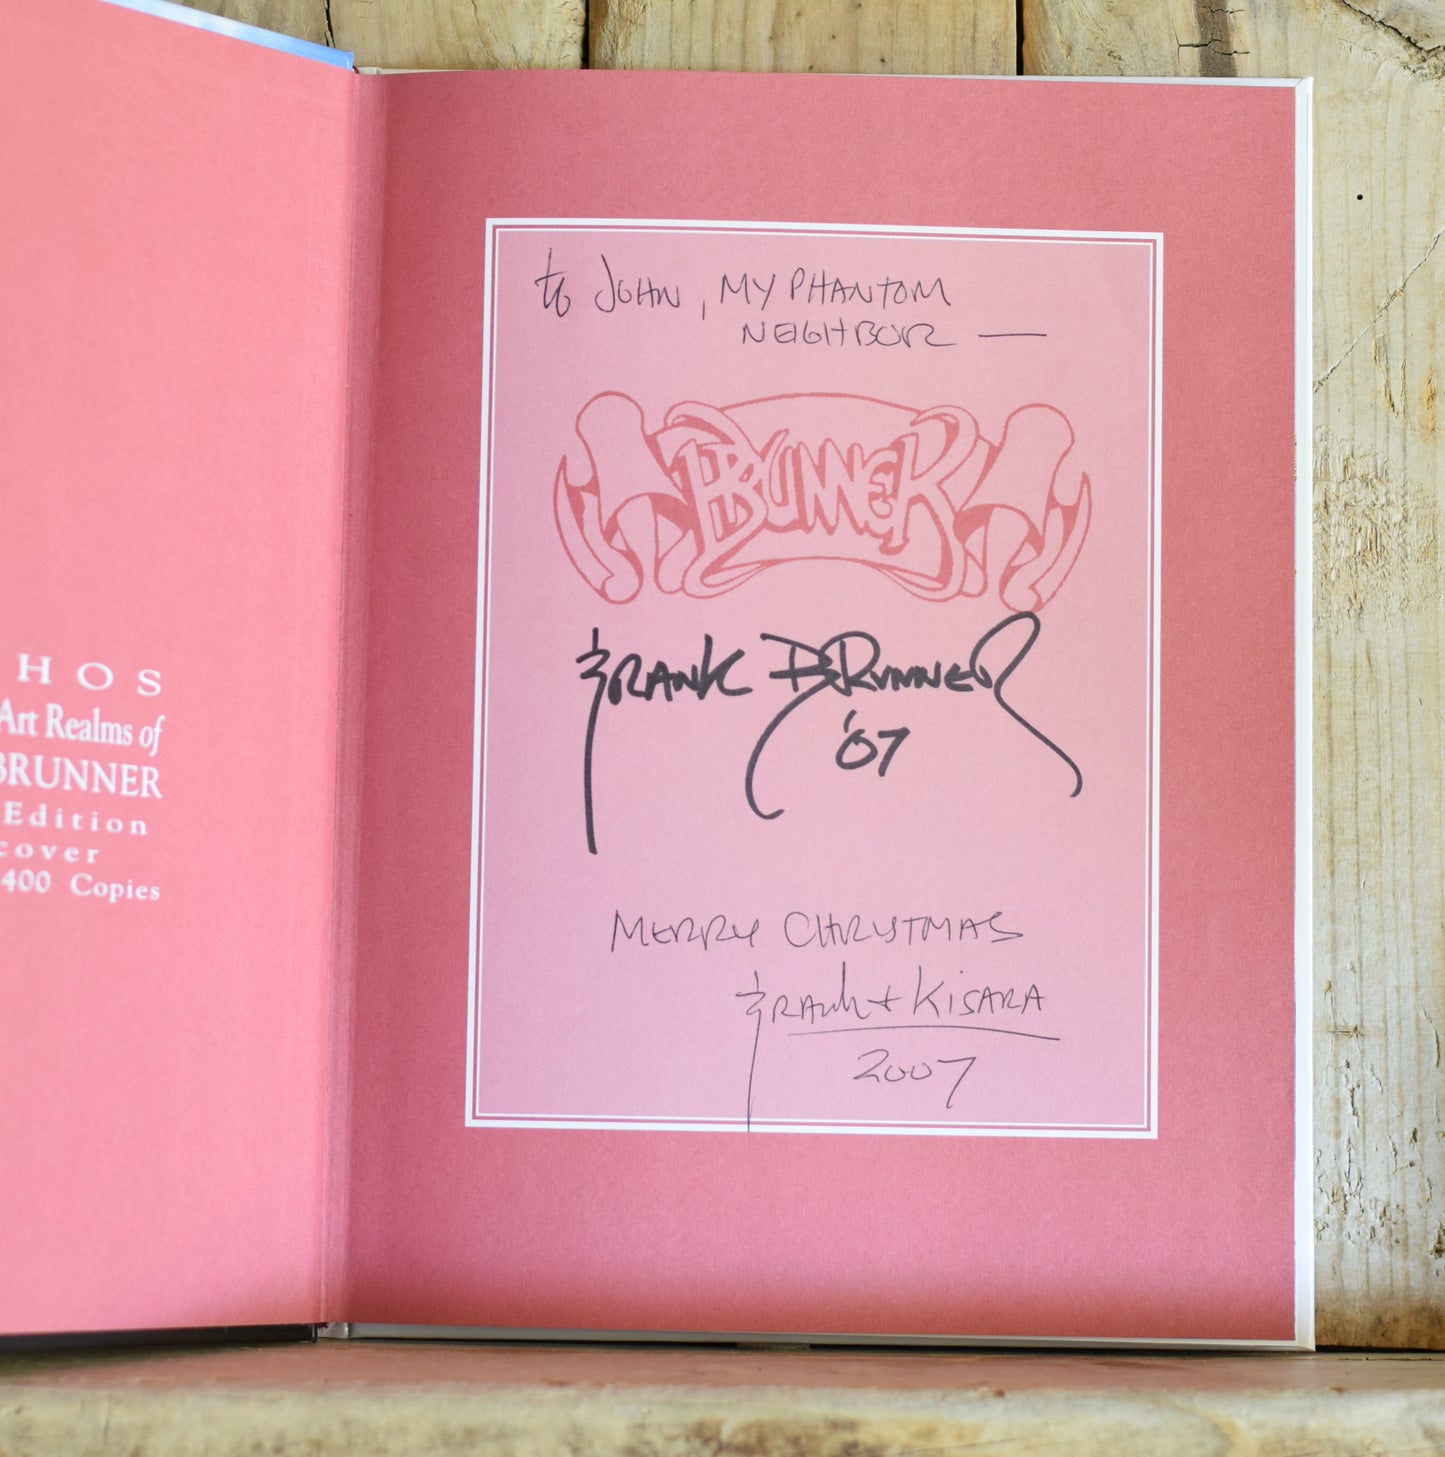 HOS
Art Realms of
BRUNNER
Edition
cover
400 Copies
to JOHN, MY PHANTOM
NEIGHBOR —
BRUNNER
FRANK BRUNNER
'07
MERRY CHRISTMAS
FRANK + KISARA
2007